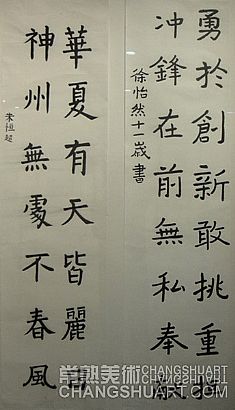 勇於創新敢挑重擔
冲鋒在前無私奉獻
徐怡然十一歲書
華夏有天皆麗日
神州無處不春風
常熟美術
CHANGSHUART.COM
CHANGSHUART.COM